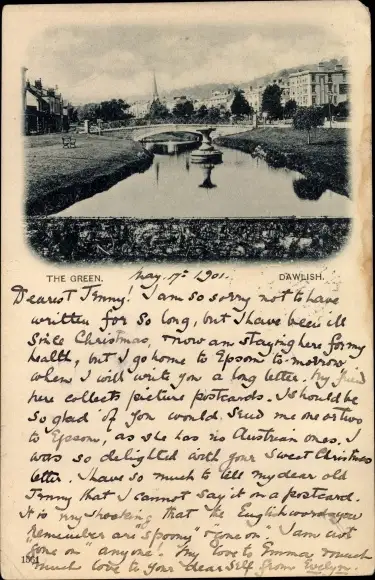 THE GREEN. May. 17th 1901. DAWLISH.
Dearest Jenny! I am so sorry not to have
written for so long, but I have been ill
since Christmas, & now am staying here for my
health, but I go home to Epsom to-morrow
when I will write you a long letter. My
here collects picture postcards. I should be
so glad if you would. Send me one or two
to Epsom, as she has no Austrian ones. I
was so delighted with your sweet Christmas
letter. I have so much to tell my dear old
Jenny that I cannot say it on a postcard.
It is very shocking that the English words you
remember are "spoony" & "gone on". I am not
"gone on" anyone. My love to Emma & much
much love to your dear self from Evelyn.